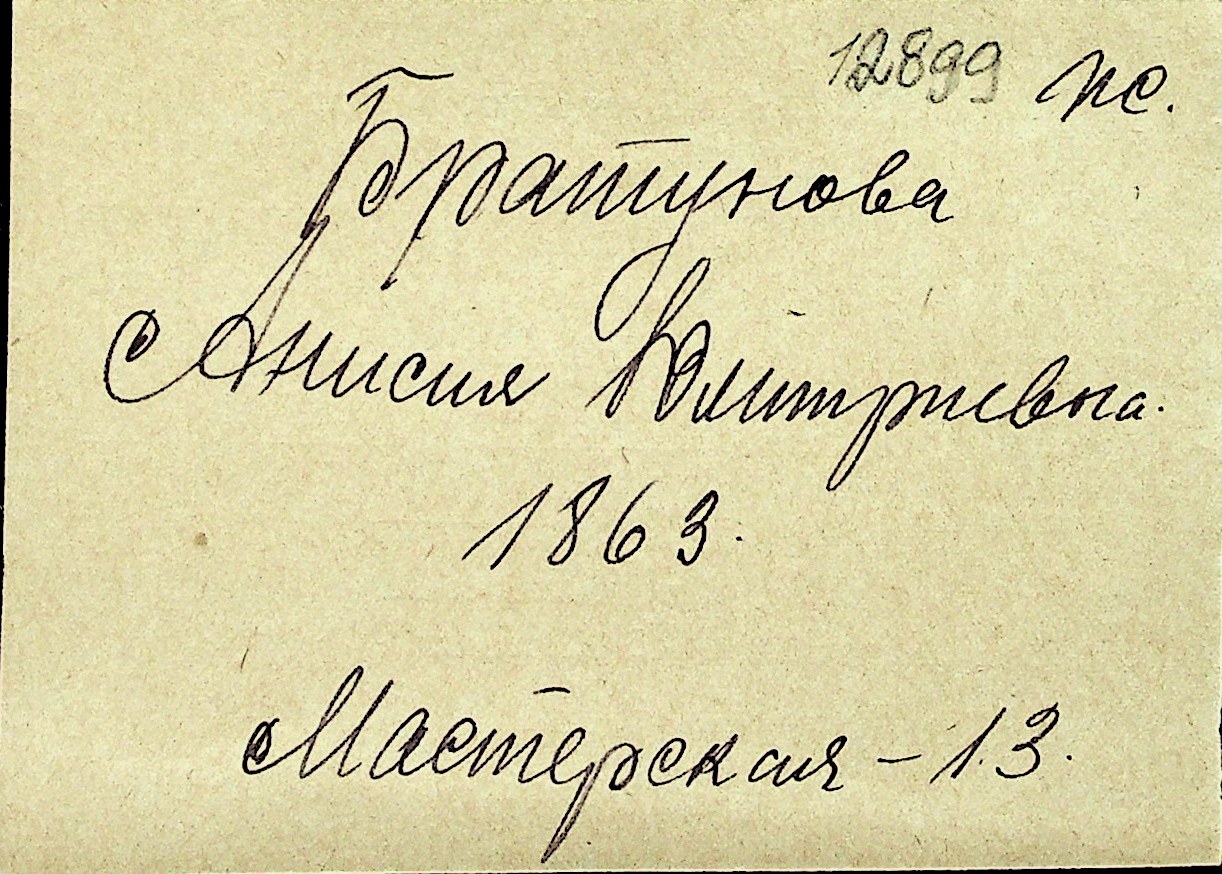 12899 пс.
Братунова
Анисия Дмитриевна.
1863.
Мастерская - 13.